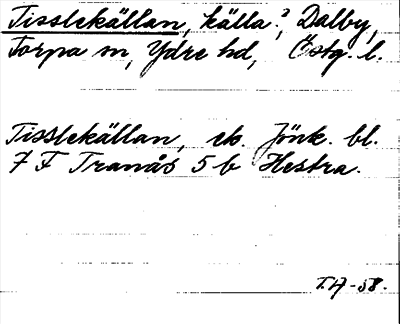 Tisslekällan, källa?, Dalby,
Torpa sn, Ydre hd, Östg. l.
Tisslekällan, ek. Jönk. bl.
7 F Tranås 5 b Hestra.
T.H-58.